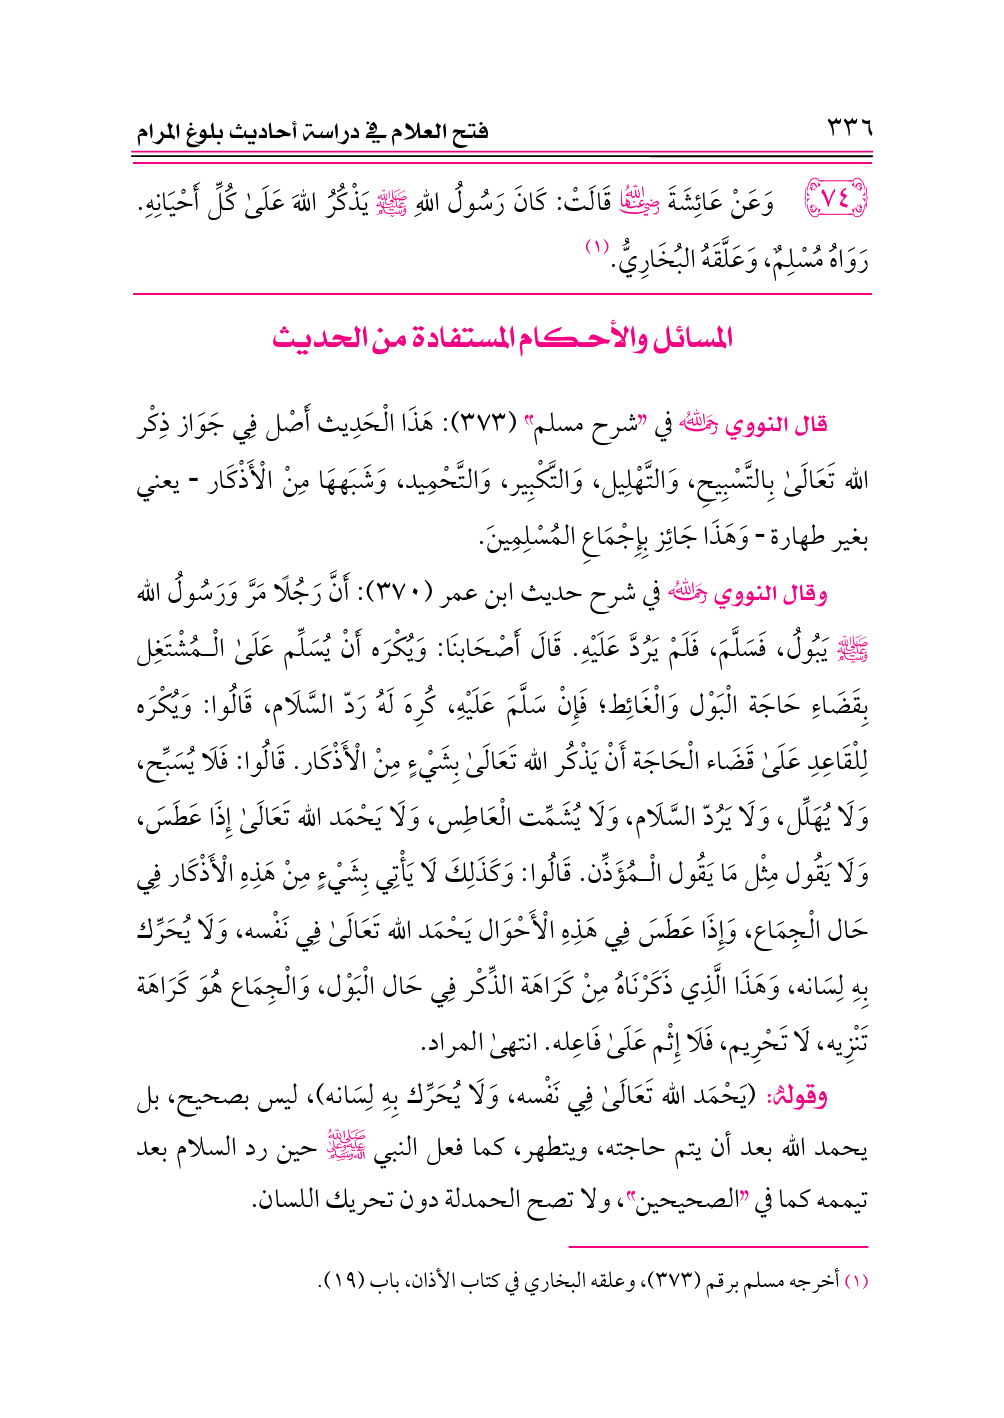 ٣٣٦ فتح العلام في دراسة أحاديث بلوغ المرام
٧٤ وَعَنْ عَائِشَةَ رضي الله عنها قَالَتْ: كَانَ رَسُولُ اللهِ ﷺ يَذْكُرُ اللهَ عَلَىٰ كُلِّ أَحْيَانِهِ.
رَوَاهُ مُسْلِمٌ، وَعَلَّقَهُ البُخَارِيُّ.(١)
المسائل والأحكام المستفادة من الحديث
قال النووي رحمه الله في "شرح مسلم" (٣٧٣): هَذَا الْحَدِيث أَصْل فِي جَوَاز ذِكْر
الله تَعَالَىٰ بِالتَّسْبِيحِ، وَالتَّهْلِيل، وَالتَّكْبِير، وَالتَّحْمِيد، وَشَبَهَهَا مِنْ الْأَذْكَار - يعني
بغير طهارة - وَهَذَا جَائِز بِإِجْمَاعِ المُسْلِمِينَ.
وقال النووي رحمه الله في شرح حديث ابن عمر (٣٧٠): أَنَّ رَجُلًا مَرَّ وَرَسُولُ الله
ﷺ يَبُولُ، فَسَلَّمَ، فَلَمْ يَرُدَّ عَلَيْهِ. قَالَ أَصْحَابنَا: وَيُكْرَه أَنْ يُسَلِّم عَلَىٰ الْـمُشْتَغِل
بِقَضَاءِ حَاجَة الْبَوْل وَالْغَائِط؛ فَإِنْ سَلَّمَ عَلَيْهِ، كُرِهَ لَهُ رَدّ السَّلَام، قَالُوا: وَيُكْرَه
لِلْقَاعِدِ عَلَىٰ قَضَاء الْحَاجَة أَنْ يَذْكُر الله تَعَالَىٰ بِشَيْءٍ مِنْ الْأَذْكَار. قَالُوا: فَلَا يُسَبِّح،
وَلَا يُهَلِّل، وَلَا يَرُدّ السَّلَام، وَلَا يُشَمِّت الْعَاطِس، وَلَا يَحْمَد الله تَعَالَىٰ إِذَا عَطَسَ،
وَلَا يَقُول مِثْل مَا يَقُول الْـمُؤَذِّن. قَالُوا: وَكَذَلِكَ لَا يَأْتِي بِشَيْءٍ مِنْ هَذِهِ الْأَذْكَار فِي
حَال الْجِمَاع، وَإِذَا عَطَسَ فِي هَذِهِ الْأَحْوَال يَحْمَد الله تَعَالَىٰ فِي نَفْسه، وَلَا يُحَرِّك
بِهِ لِسَانه، وَهَذَا الَّذِي ذَكَرْنَاهُ مِنْ كَرَاهَة الذِّكْر فِي حَال الْبَوْل، وَالْجِمَاع هُوَ كَرَاهَة
تَنْزِيه، لَا تَحْرِيم، فَلَا إِثْم عَلَىٰ فَاعِله. انتهىٰ المراد.
وقوله: (يَحْمَد الله تَعَالَىٰ فِي نَفْسه، وَلَا يُحَرِّك بِهِ لِسَانه)، ليس بصحيح، بل
يحمد الله بعد أن يتم حاجته، ويتطهر، كما فعل النبي ﷺ حين رد السلام بعد
تيممه كما في "الصحيحين"، ولا تصح الحمدلة دون تحريك اللسان.
(١) أخرجه مسلم برقم (٣٧٣)، وعلقه البخاري في كتاب الأذان، باب (١٩).